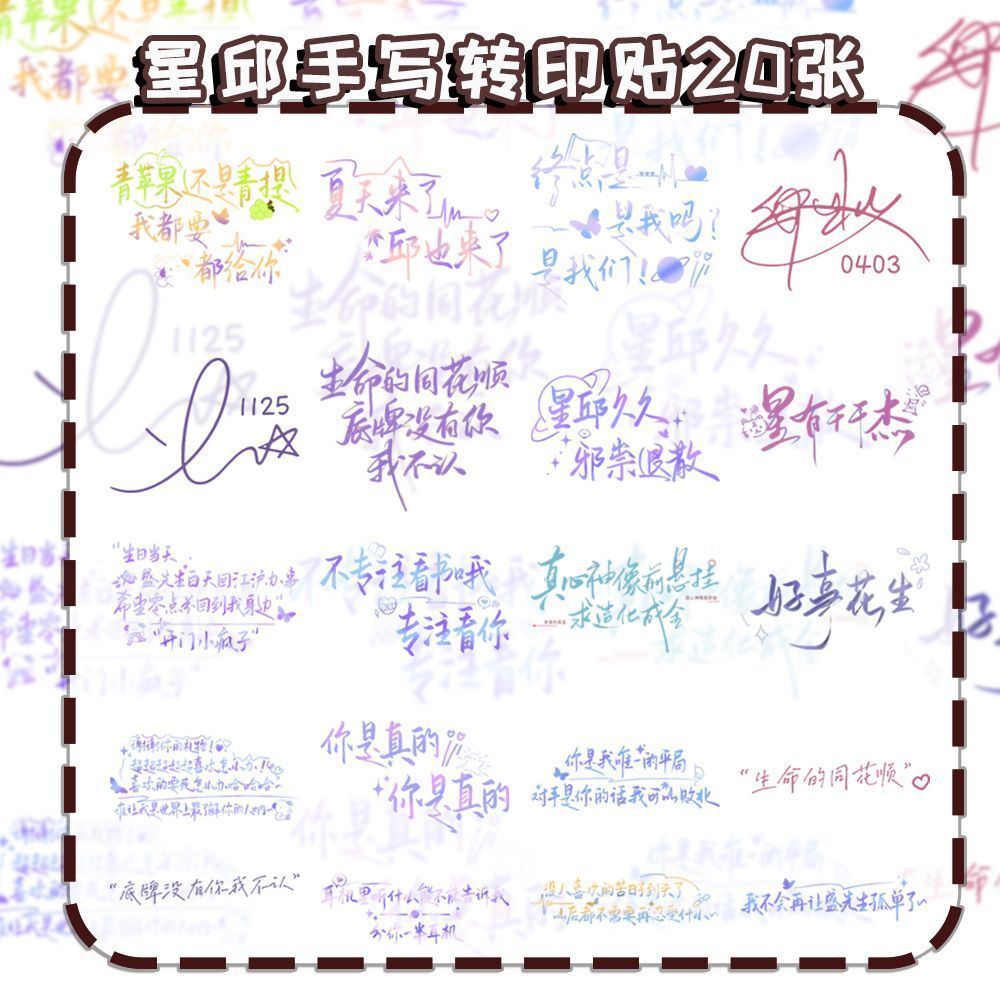 星邱手写转印贴20张
青苹果还是青提
我都要
都给你
夏天来了
邱也来了
终点是
是我吗？
是我们！
0403
1125
生命的同花顺
底牌没有你
我不认
星邱久久
邪祟退散
星有千千杰
"生日当天
盛先生白天回江沪办事
希望零点前回到我身边"
"开门小疯子"
不专注看书哦
专注看你
真心神像前悬挂
求造化成全
好事花生
谢谢你的礼物！
超超超超超喜欢怎么办！
喜欢的要死怎么办哈哈哈~
谁让我是世界上最了解你的人呐~
你是真的
你是真的
你是我唯一的平局
对手是你的话我可以败北
"生命的同花顺"
"底牌没有你我不认"
耳机里听什么能不能告诉我
分你一半耳机
没人喜欢的苦日子到头了
以后都不需要再忍受什么
我不会再让盛先生孤单了~